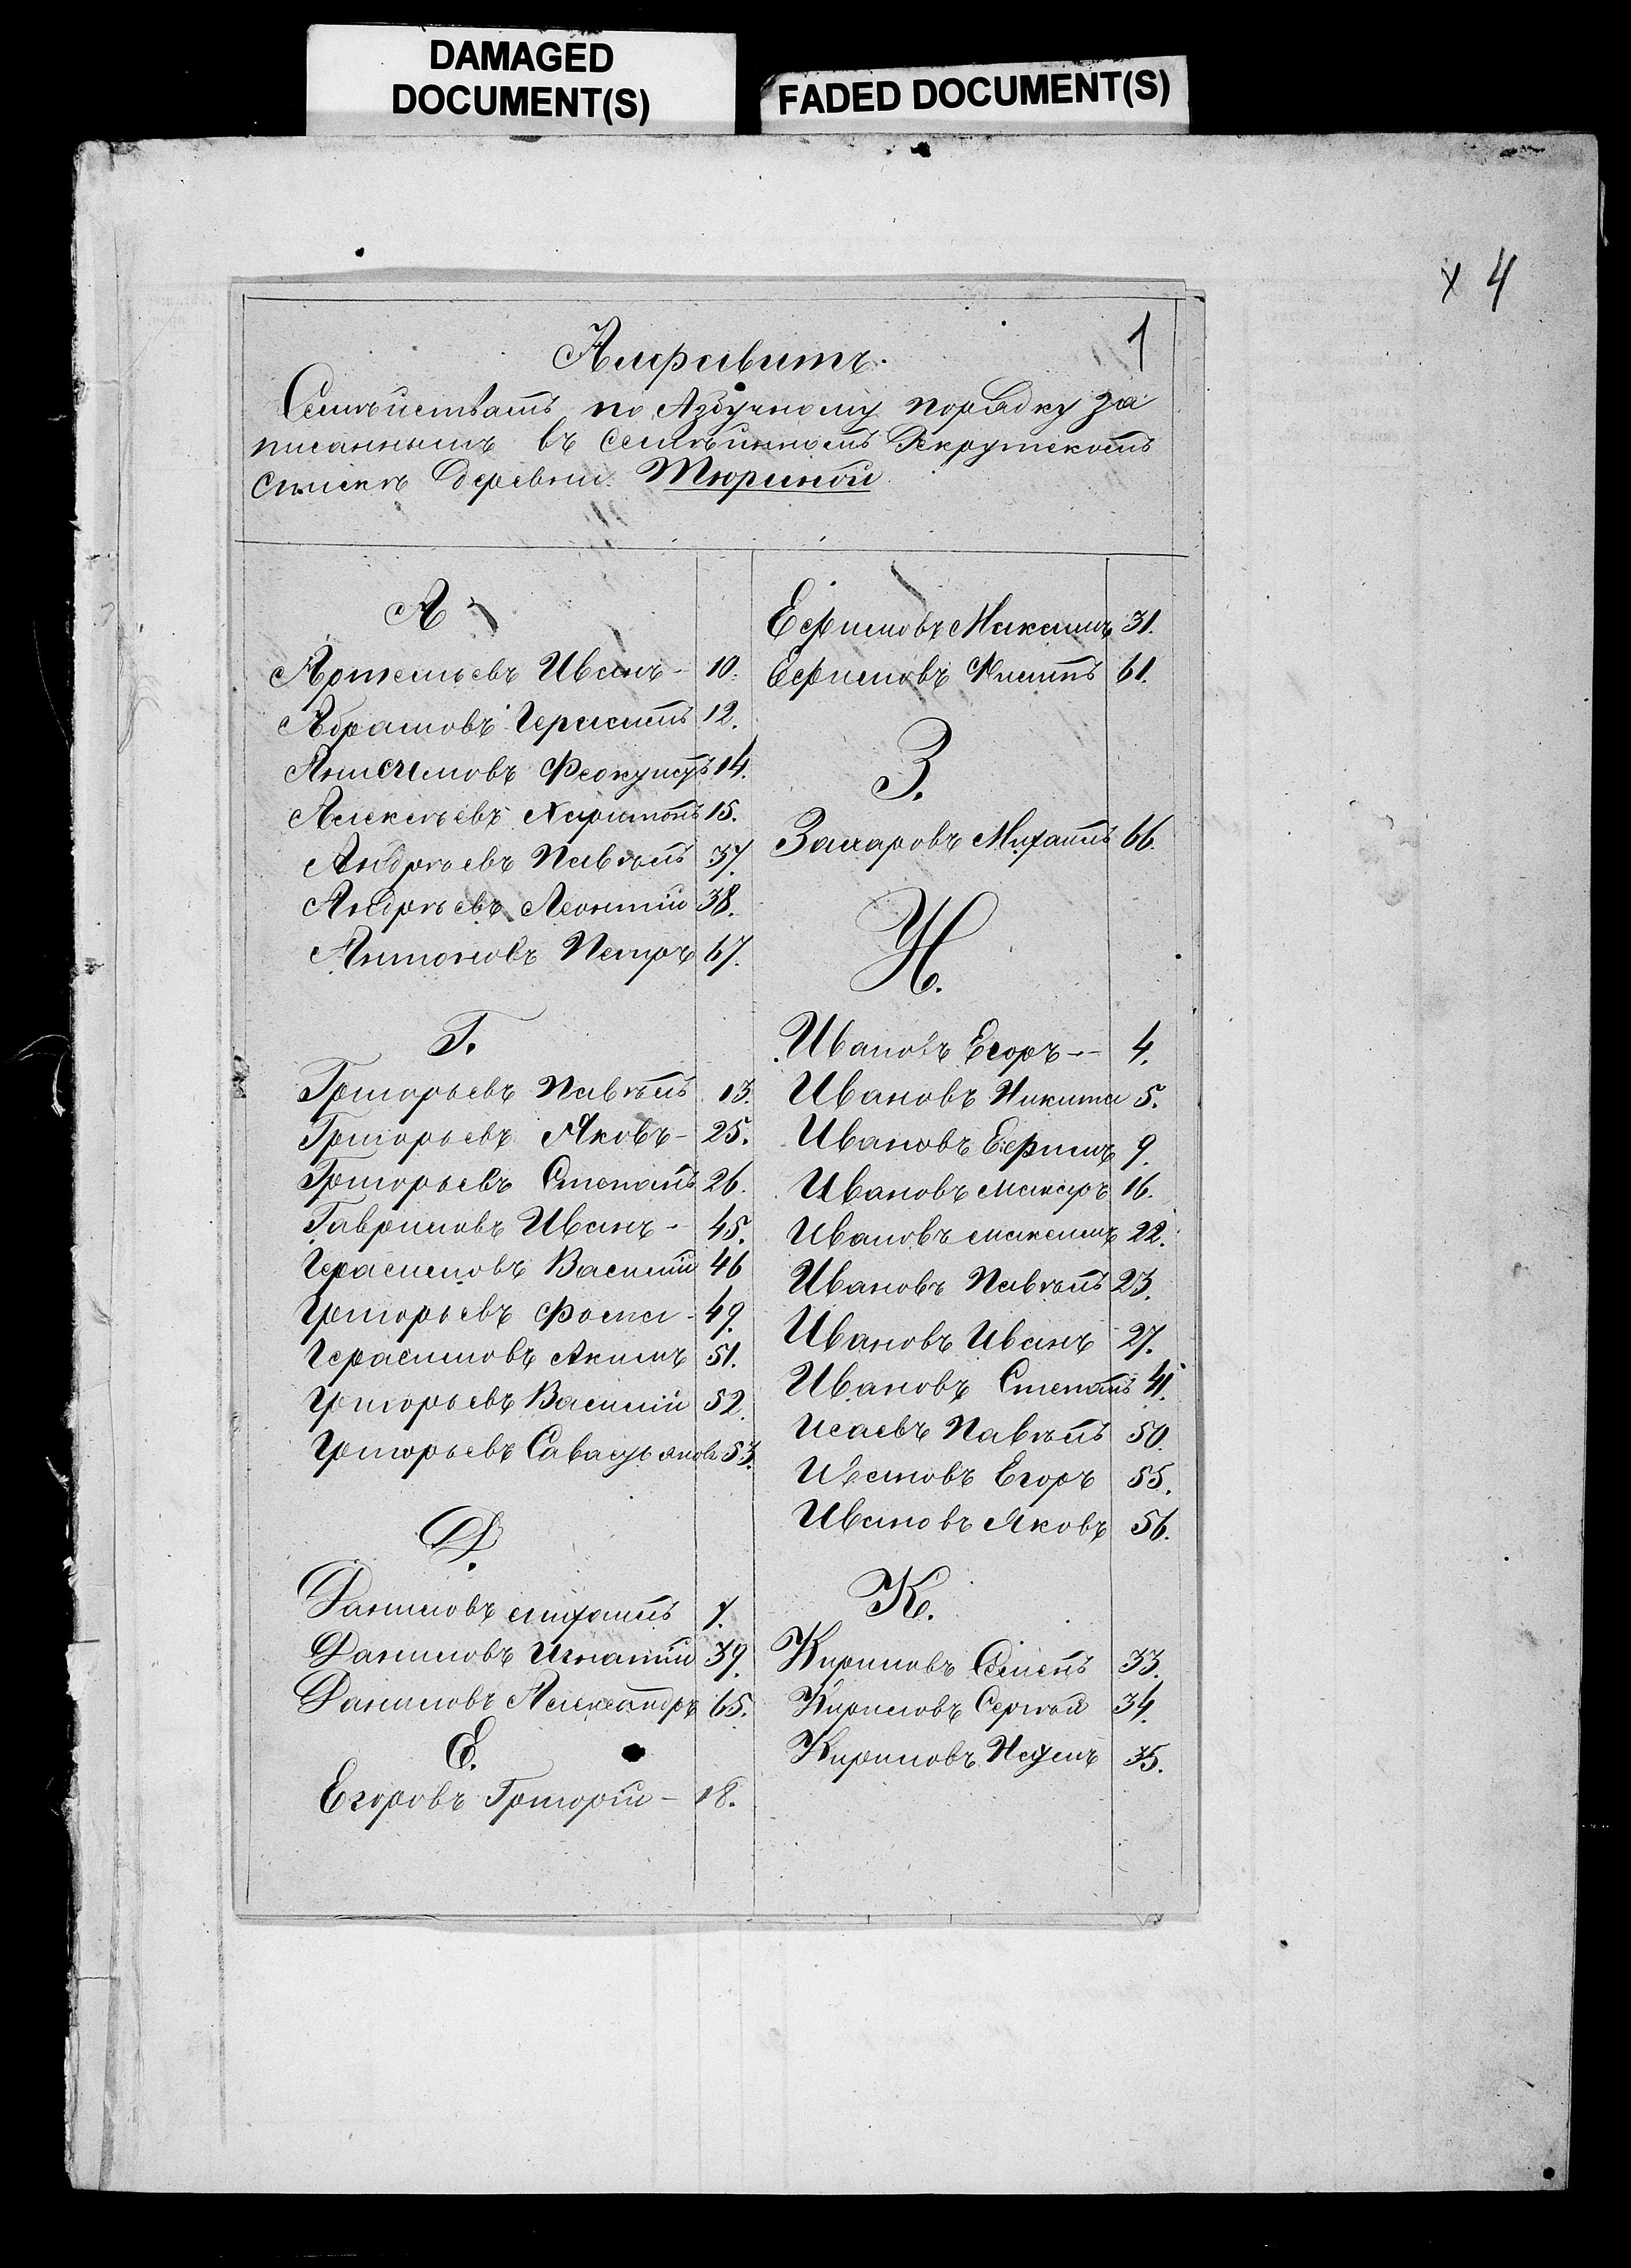 DAMAGED
DOCUMENT(S)
FADED DOCUMENT(S)
х 4
1
Алфавитъ.
Семѣйствамъ по Азбучному порядку за
писаннымъ въ семѣйномъ Рекрутскомъ
спискѣ деревни Тюриной
А
Артемьевъ Иванъ - 10.
Абрамовъ Герасимъ 12.
Анисимовъ Феокустъ 14.
Алексѣевъ Харитонъ 15.
Андрѣевъ Павѣлъ 37.
Андрѣевъ Леонтій 38.
Антоновъ Петръ 67.
Г.
Григорьевъ Павѣлъ 13.
Григорьевъ Яковъ - 25.
Григорьевъ Степанъ 26.
Гавриловъ Иванъ - 45.
Герасимовъ Василій 46
Григорьевъ Фома - 49.
Герасимовъ Акимъ 51.
Григорьевъ Василій 52.
Григорьевъ 53.
Д.
Даниловъ михаилъ 7.
Даниловъ Игнатій 39.
Даниловъ Александръ 65.
Е.
Егоровъ Григорій - 18.
Ефимовъ Максимъ 31.
Ефимовъ 61.
З.
Захаровъ Михаилъ 66.
И.
Ивановъ Егоръ -- 4.
Ивановъ Никита 5.
Ивановъ Ефимъ 9.
Ивановъ макаръ 16.
Ивановъ максимъ 22.
Ивановъ Павѣлъ 23.
Ивановъ Иванъ 27.
Ивановъ Степанъ 41.
Исаевъ Павѣлъ 50.
Ивановъ Егоръ 55.
Ивановъ Яковъ 56.
К.
Кириловъ Семенъ 33.
Кириловъ Сергѣй 34.
Кириловъ 35.